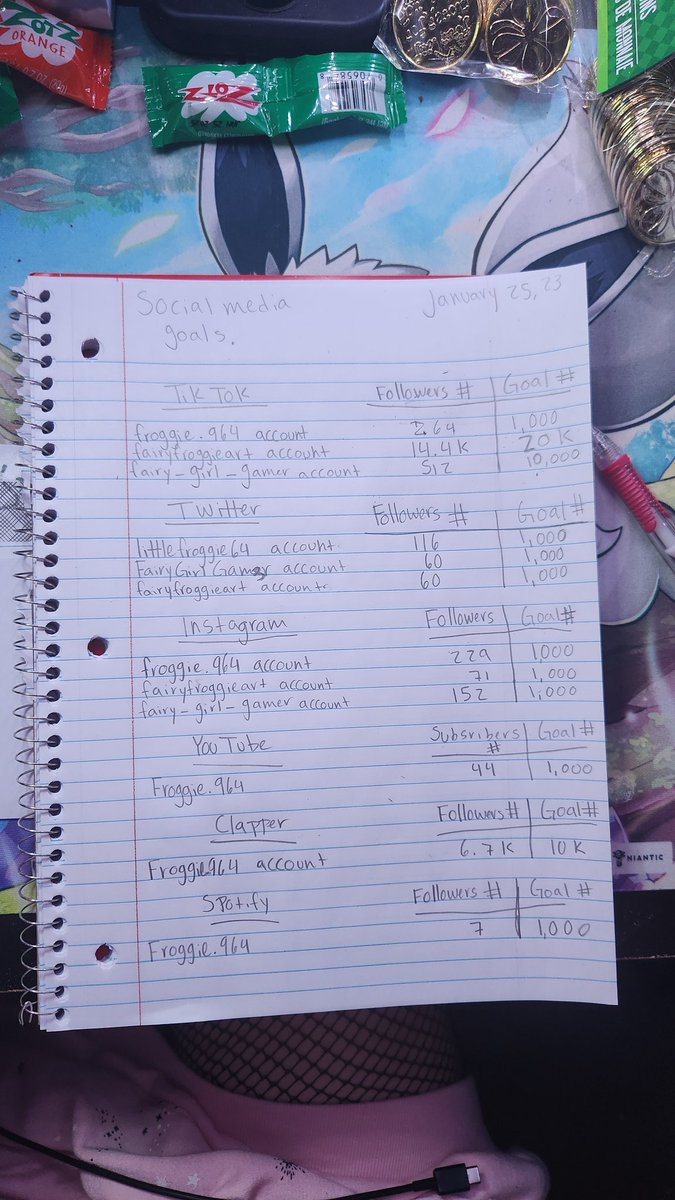 ZOTZ
ORANGE
ZOTZ
Social media January 25, 23
goals.
TikTok Followers # Goal #
froggie.964 account 264 1,000
fairyfroggieart account 14.4K 20K
fairy-girl-gamer account 512 10,000
Twitter Followers # Goal #
littlefroggie64 account. 116 1,000
FairyGirlGamer account 60 1,000
fairyfroggieart account 60 1,000
Instagram Followers Goal#
froggie.964 account 229 1,000
fairyfroggieart account 71 1,000
fairy-girl-gamer account 152 1,000
YouTube Subsribers # Goal #
Froggie.964 44 1,000
Clapper Followers# Goal#
Froggie.964 account 6.7K 10K
Spotify Followers # Goal #
Froggie.964 7 1,000
NIANTIC